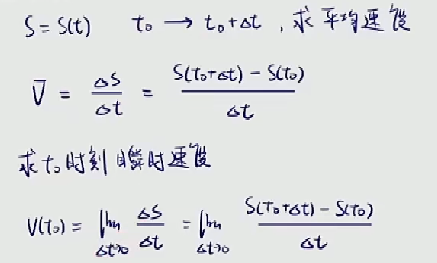 S = S(t) t₀ → t₀+Δt , 求平均速度
V̄ = ΔS/Δt = (S(t₀+Δt) - S(t₀))/Δt
求t₀时刻瞬时速度
V(t₀) = lim Δt→0 ΔS/Δt = lim Δt→0 (S(t₀+Δt) - S(t₀))/Δt